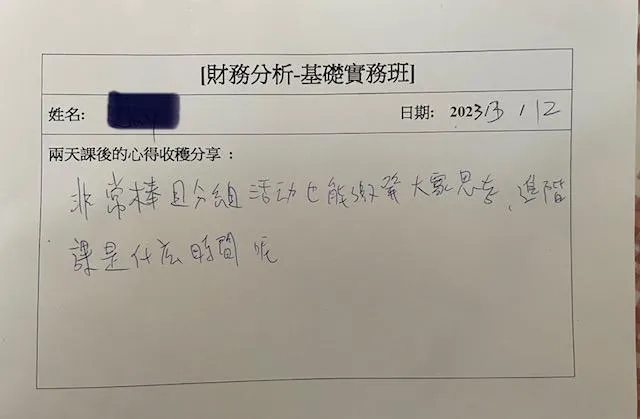 [財務分析-基礎實務班]
姓名: 日期: 2023/3/12
兩天課後的心得收穫分享：
非常棒且分組活动也能激發大家思考、進階
課是什么時間呢